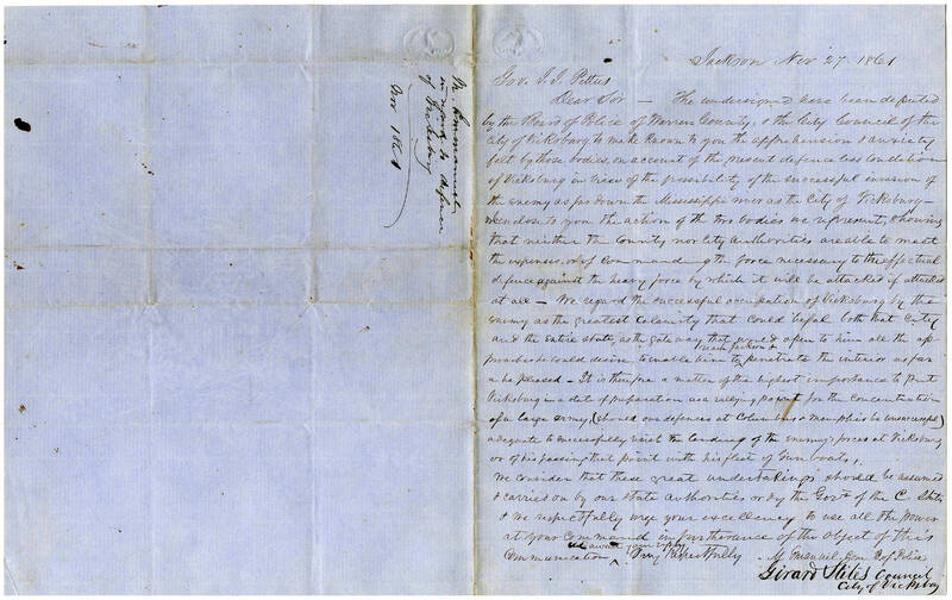 M. Emmanuel
in regard to defence
of Vicksburg
Nov 1861
Jackson Nov 27 1861
Gov. J. J. Pettus
Dear Sir — The undersigned have been deputed
by the Board of Police of Warren County, & the City Council of the
City of Vicksburg to make known to you the apprehension & anxiety
felt by those bodies, on account of the present defenceless condition
of Vicksburg in view of the possibility of the successful invasion of
the enemy as far down the Mississippi river as the City of Vicksburg —
we enclose to you the action of the two bodies we represent, showing
that neither the County nor City Authorities are able to meet
the expenses, or of commanding the force necessary to the effectual
defence against the heavy force by which it will be attacked if attacked
at all — We regard the successful occupation of Vicksburg by the
enemy as the greatest calamity that could befal both that City
and the entire state, as the gate way that would open to him all the ap-
proaches he could desire to enable him to reach Jackson & penetrate the interior as far
as he pleased — It is therefore a matter of the highest importance to put
Vicksburg in a state of preparation as a rallying point for the concentration
of a large army, (should our defences at Columbus & Memphis be unsuccessful)
adequate to successfully resist the landing of the enemy's forces at Vicksburg
or of his passing that point with his fleet of Gun boats,
We consider that these great undertakings should be assumed
& carried on by our state authorities or by the Govt of the C. States
& we respectfully urge your excellency to use all the power
at your command in furtherance of the object of this
Communication & await your reply Very Respectfully M Emanuel, Com B of Police
Girard Stites Council
City of Vicksburg